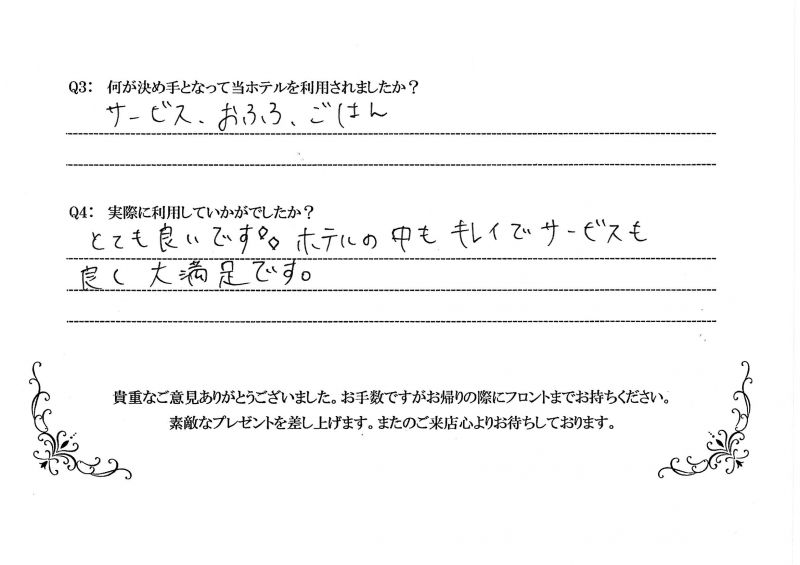 Q3： 何が決め手となって当ホテルを利用されましたか？
サービス、おふろ、ごはん
Q4： 実際に利用していかがでしたか？
とても良いです。。ホテルの中もキレイでサービスも
良く大満足です。
貴重なご意見ありがとうございました。お手数ですがお帰りの際にフロントまでお持ちください。
素敵なプレゼントを差し上げます。またのご来店心よりお待ちしております。